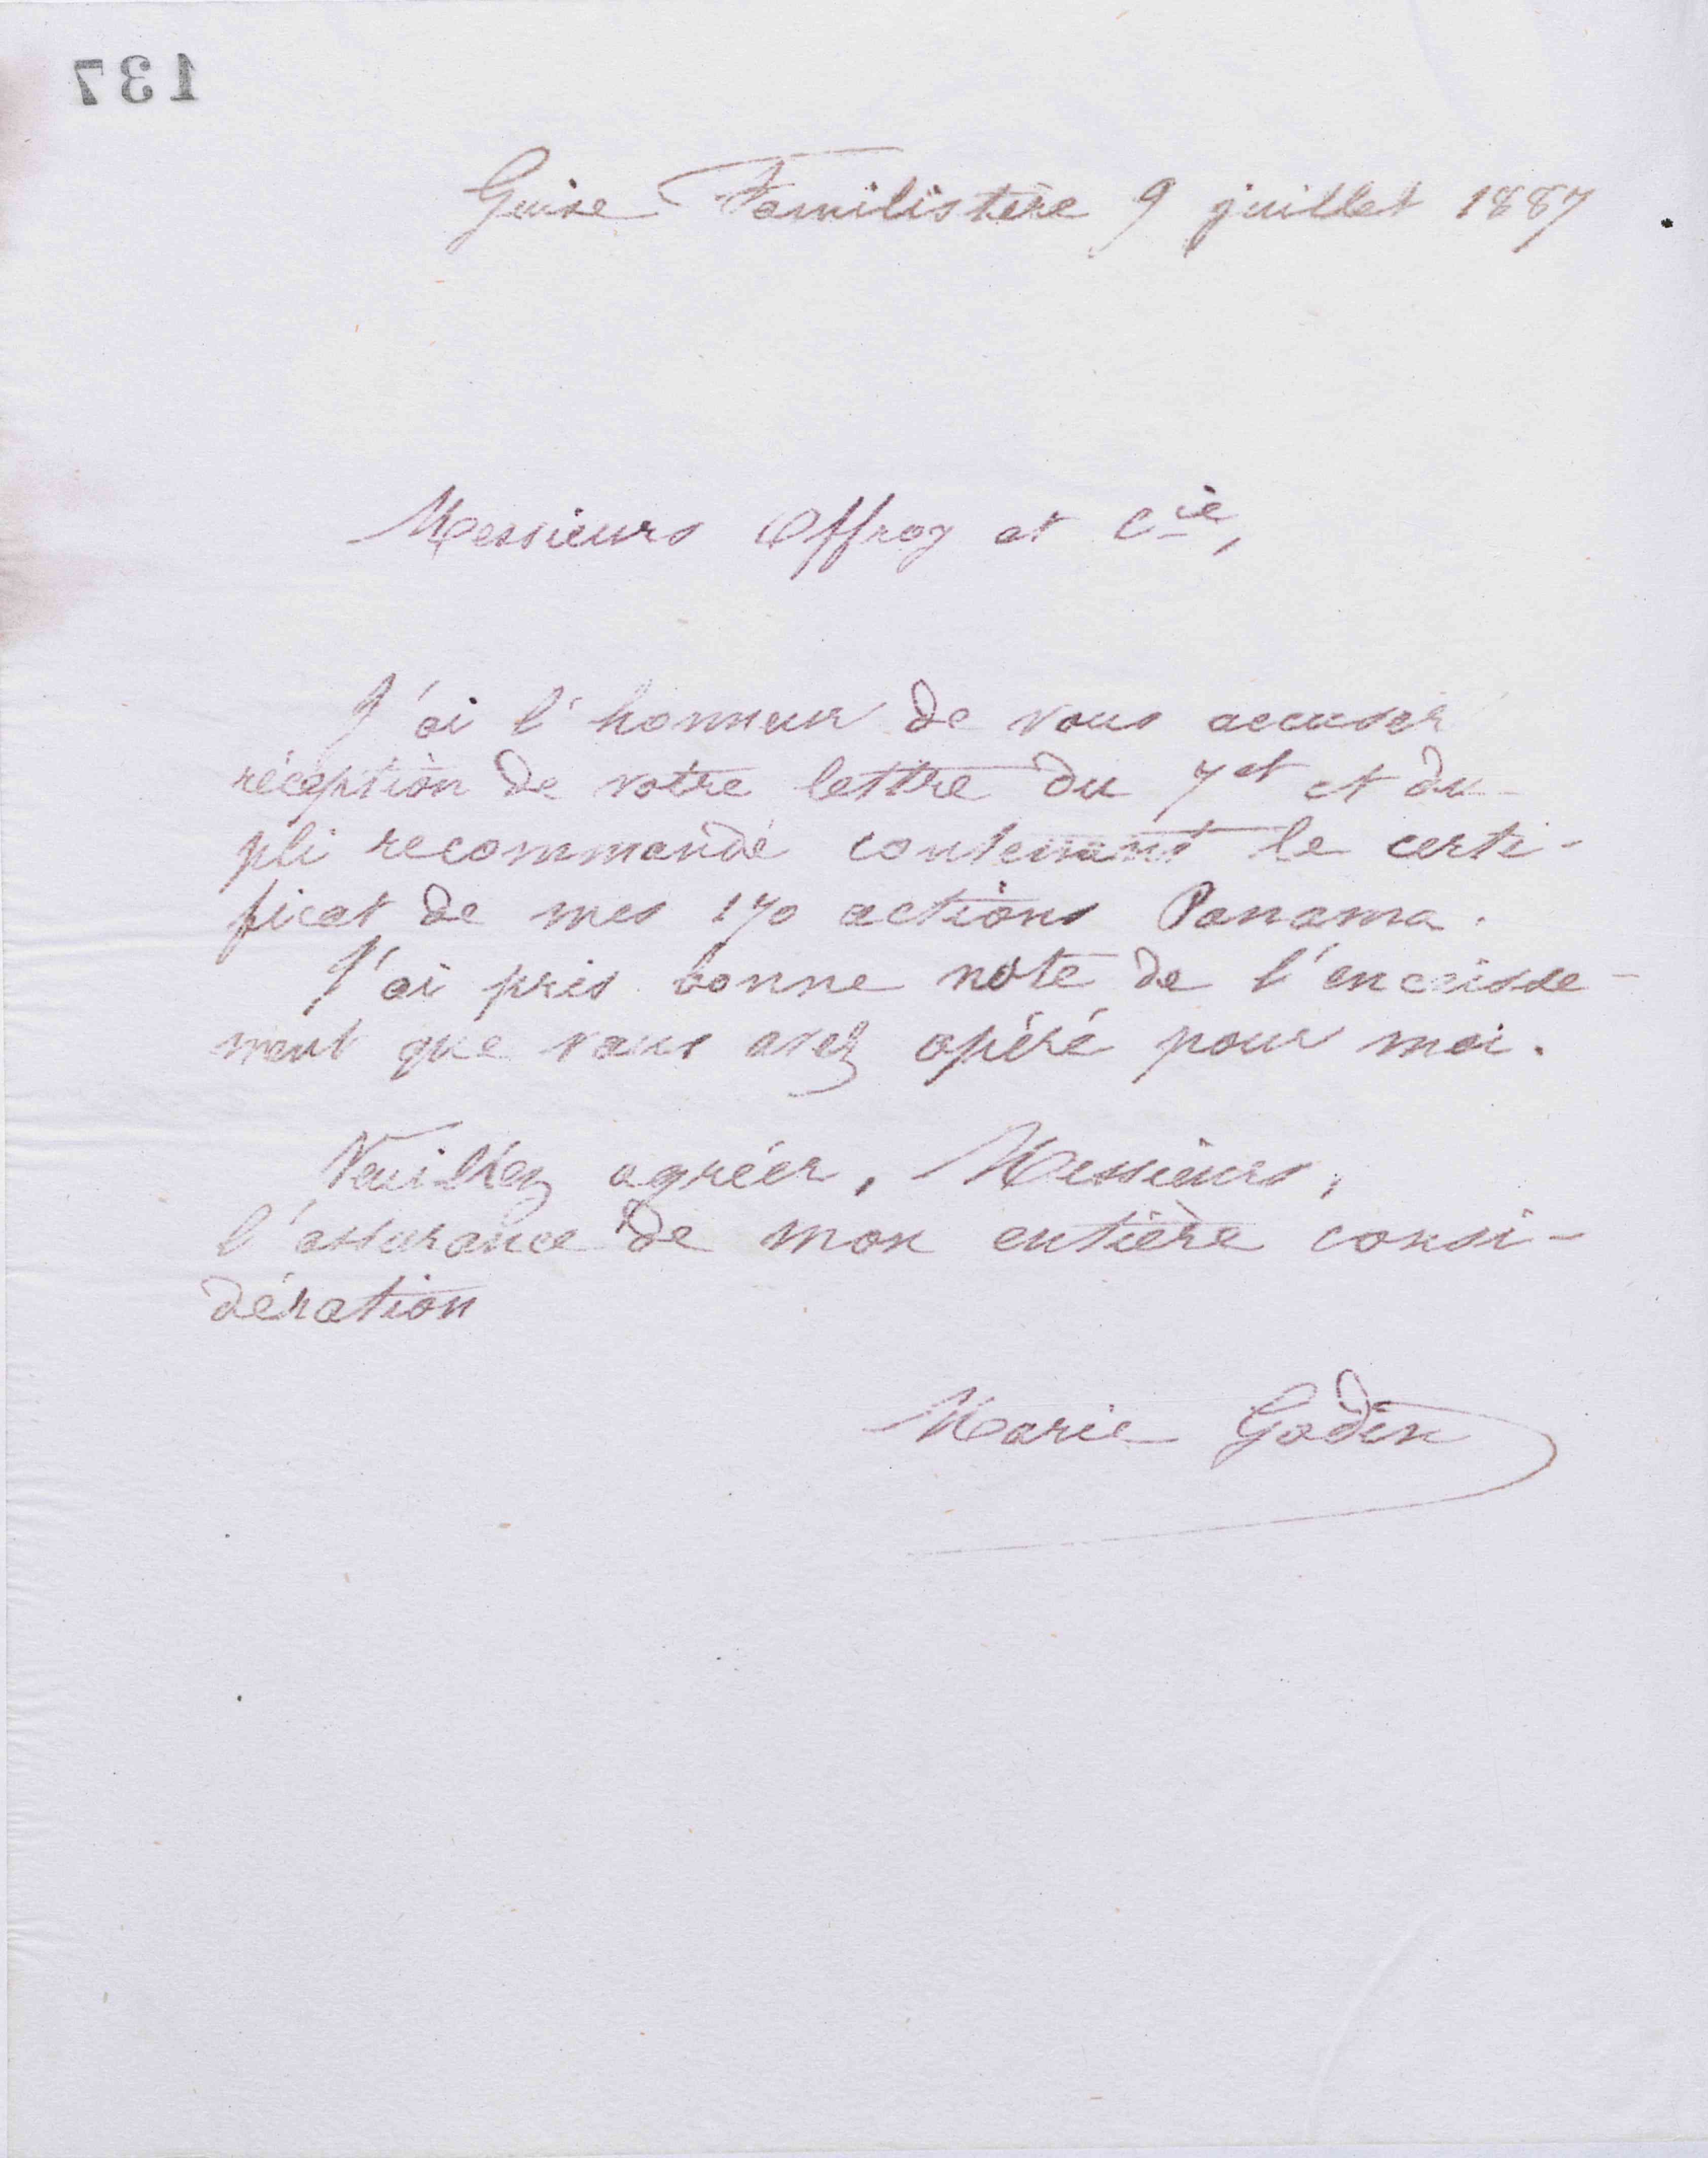 137
Guise Familistère 9 juillet 1887
Messieurs Offroy et Cie,
J'ai l'honneur de vous accuser
réception de votre lettre du 7 ct et du
pli recommandé contenant le certi-
ficat de mes 170 actions Panama.
J'ai pris bonne note de l'encaisse-
ment que vous avez opéré pour moi.
Veuillez agréer, Messieurs,
l'assurance de mon entière consi-
dération
Marie Godin